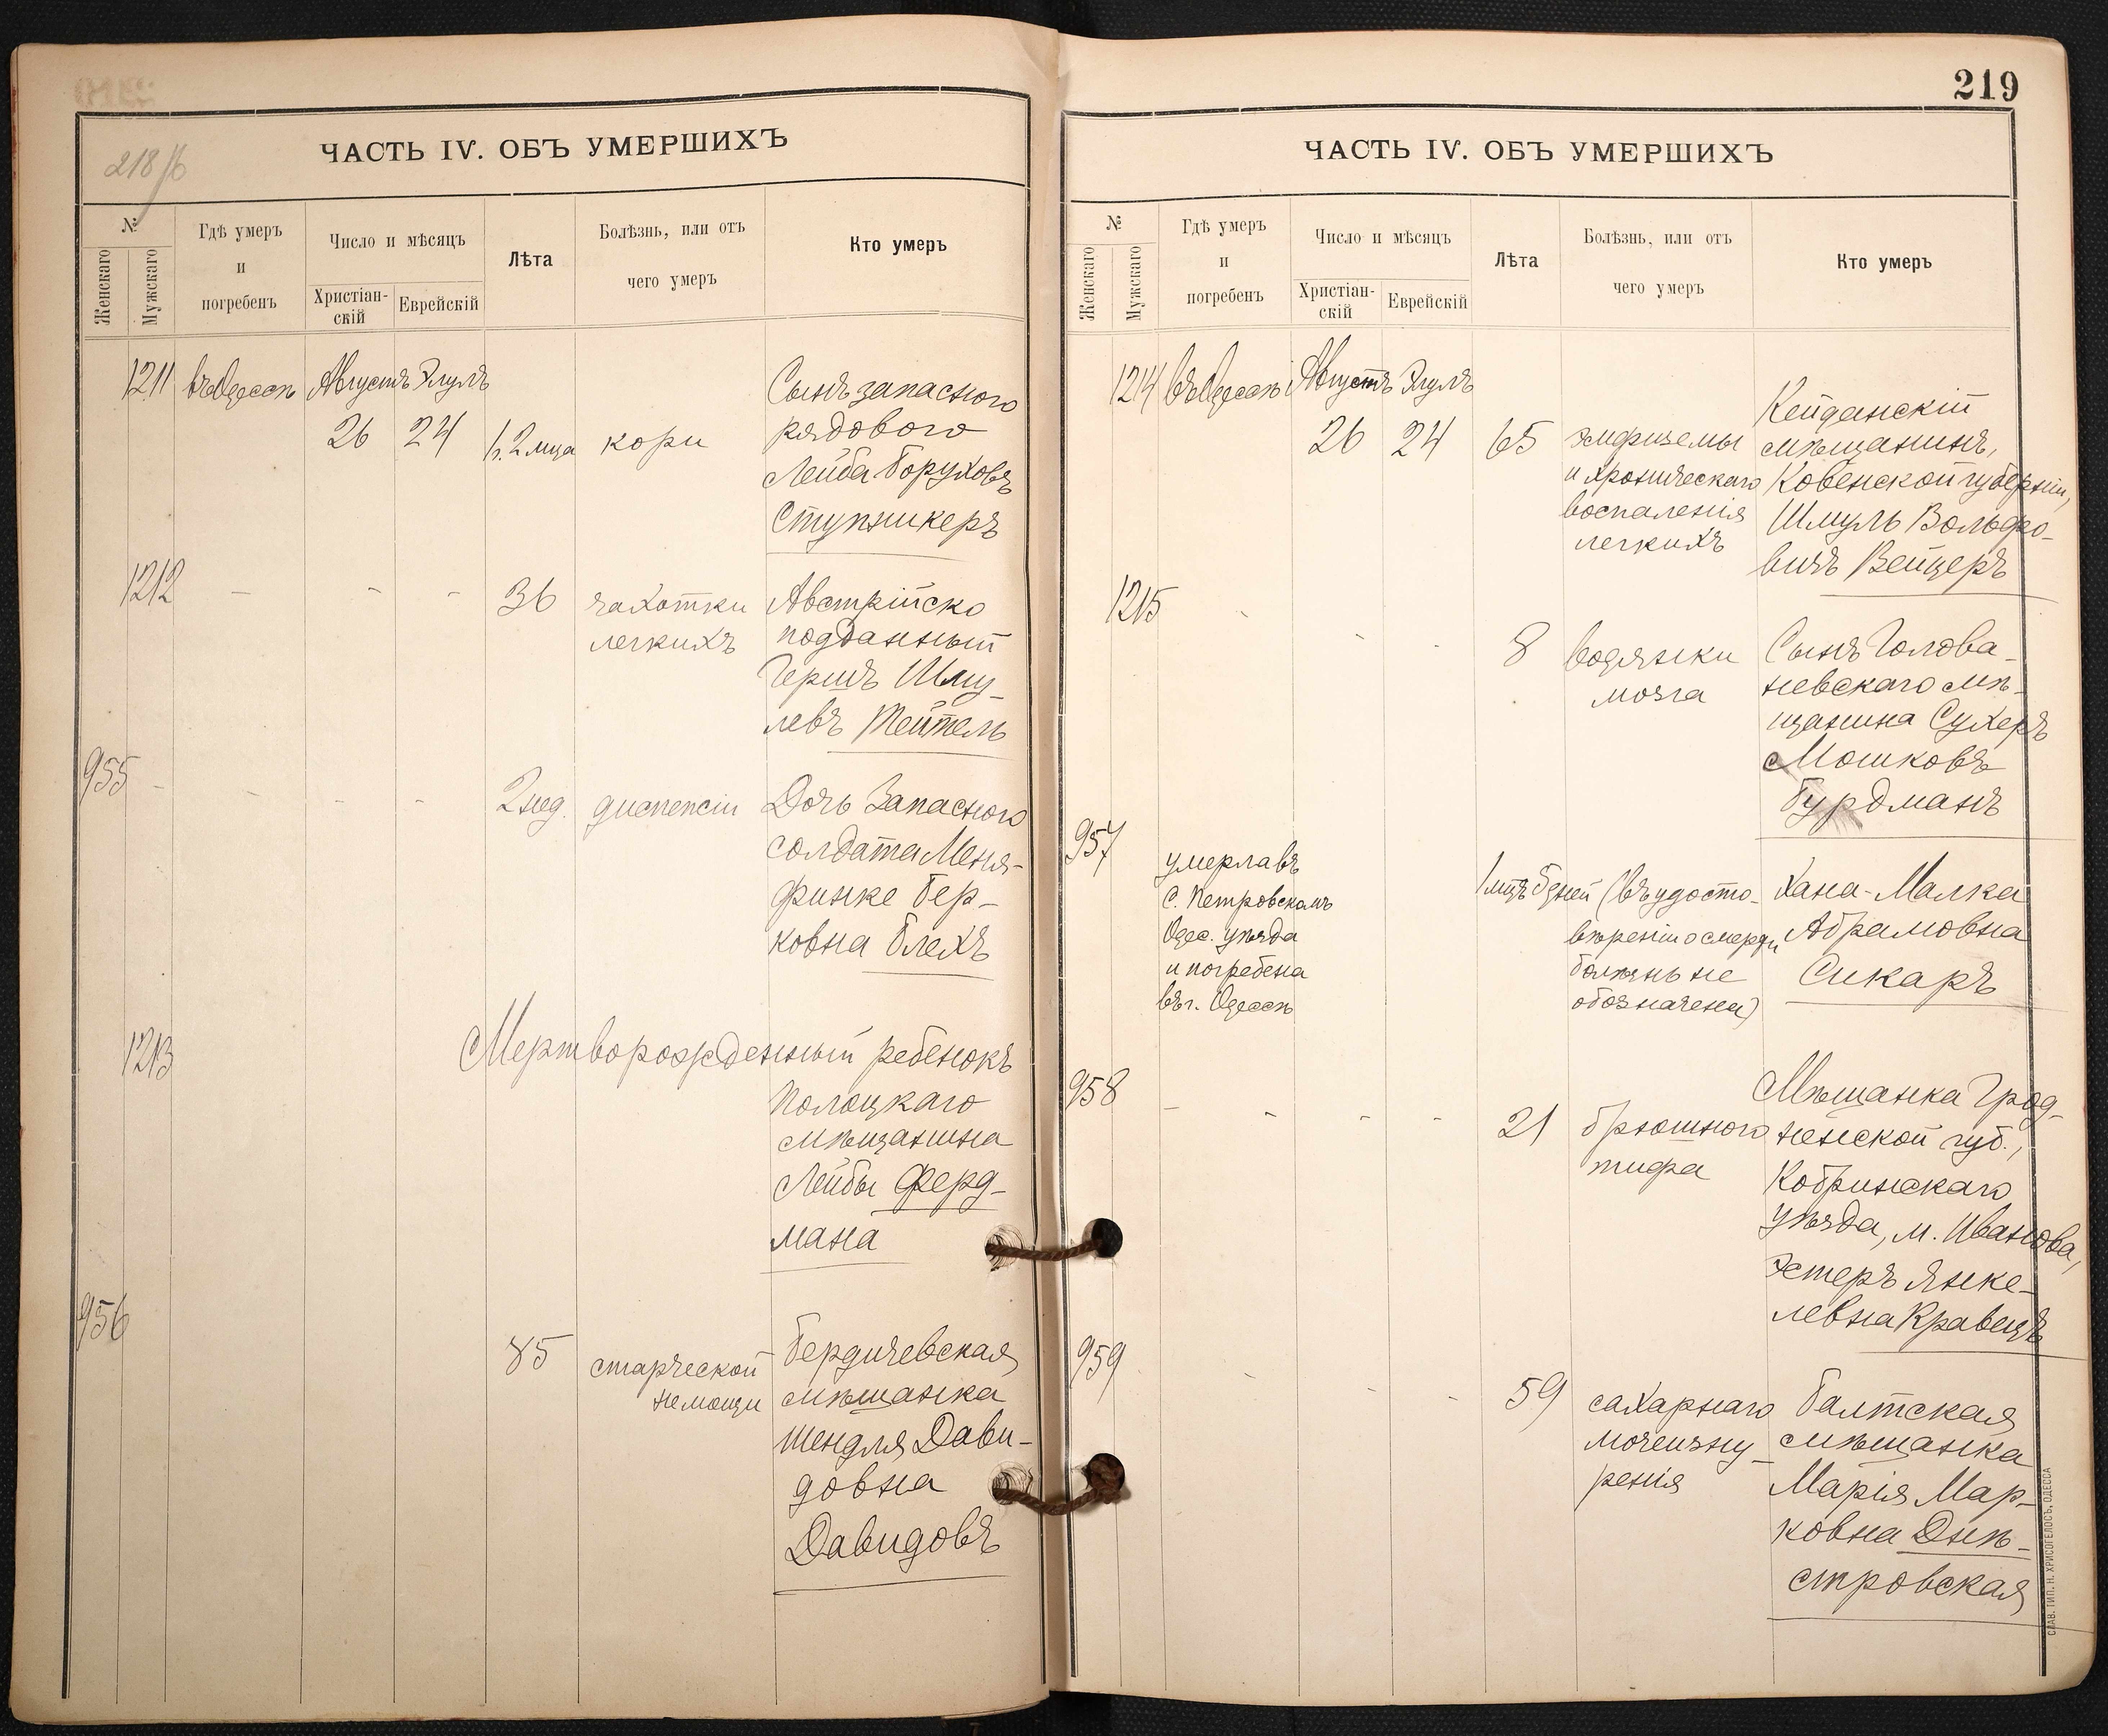 218 об
ЧАСТЬ IV. ОБЪ УМЕРШИХЪ
№
Женскаго
Мужскаго
Гдѣ умеръ
и
погребенъ
Число и мѣсяцъ
Христіан-
скій
Еврейскій
Лѣта
Болѣзнь, или отъ
чего умеръ
Кто умеръ
1211 въ Одессѣ Августъ Элулъ
26 24 1 г. 2 мца кори
Сынъ запаснаго
рядового
Лейба Боруховъ
Ступникеръ
1212 - - - 36 чахотки
легкихъ
Австрійско
подданный
Гершъ Шму-
левъ Тейтель
955 - - - - 2 нед. диспепсіи
Дочь Запасного
солдата Меня-
Финке Бер-
ковна Блехъ
1213 Мертворожденный ребенокъ
Полоцкаго
мѣщанина
Лейбы Ферд-
мана
956 85 старческой
немощи
Бердичевская
мѣщанка
Шендля Дави-
довна
Давидовъ
219
ЧАСТЬ IV. ОБЪ УМЕРШИХЪ
№
Женскаго
Мужскаго
Гдѣ умеръ
и
погребенъ
Число и мѣсяцъ
Христіан-
скій
Еврейскій
Лѣта
Болѣзнь, или отъ
чего умеръ
Кто умеръ
1214 въ Одессѣ Августъ Элулъ
26 24 65 эмфиземы
и хроническаго
воспаленія
легкихъ
Кейданскій
мѣщанинъ,
Ковенской губерніи,
Шмуль Вольфо-
вичъ Вейцеръ
1215 - - - 8 водянки
мозга
Сынъ Голова-
невскаго мѣ-
щанина Сухеръ
Мошковъ
Бурдманъ
957
умерла въ
с. Петровскомъ
Одес. уѣзда
и погребена
въ г. Одессѣ
1 мцъ 6 дней (въ удосто-
вѣреніи о смерти
болѣзнь не
обозначена)
Хана-Малка
Абрамовна
Сикаръ
958 - - - - 21 брюшного
тифа
Мѣщанка Грод-
ненской губ.,
Кобринскаго
уѣзда, м. Иванова,
Эстеръ Янке-
левна Кравецъ
959 - - - 59 сахарнаго
мочеизну-
ренія
Балтская
мѣщанка
Марія Мар-
ковна Днѣ-
стровская
СЛАВ. ТИП. Н. ХРИСОГЕЛОСЪ, ОДЕССА